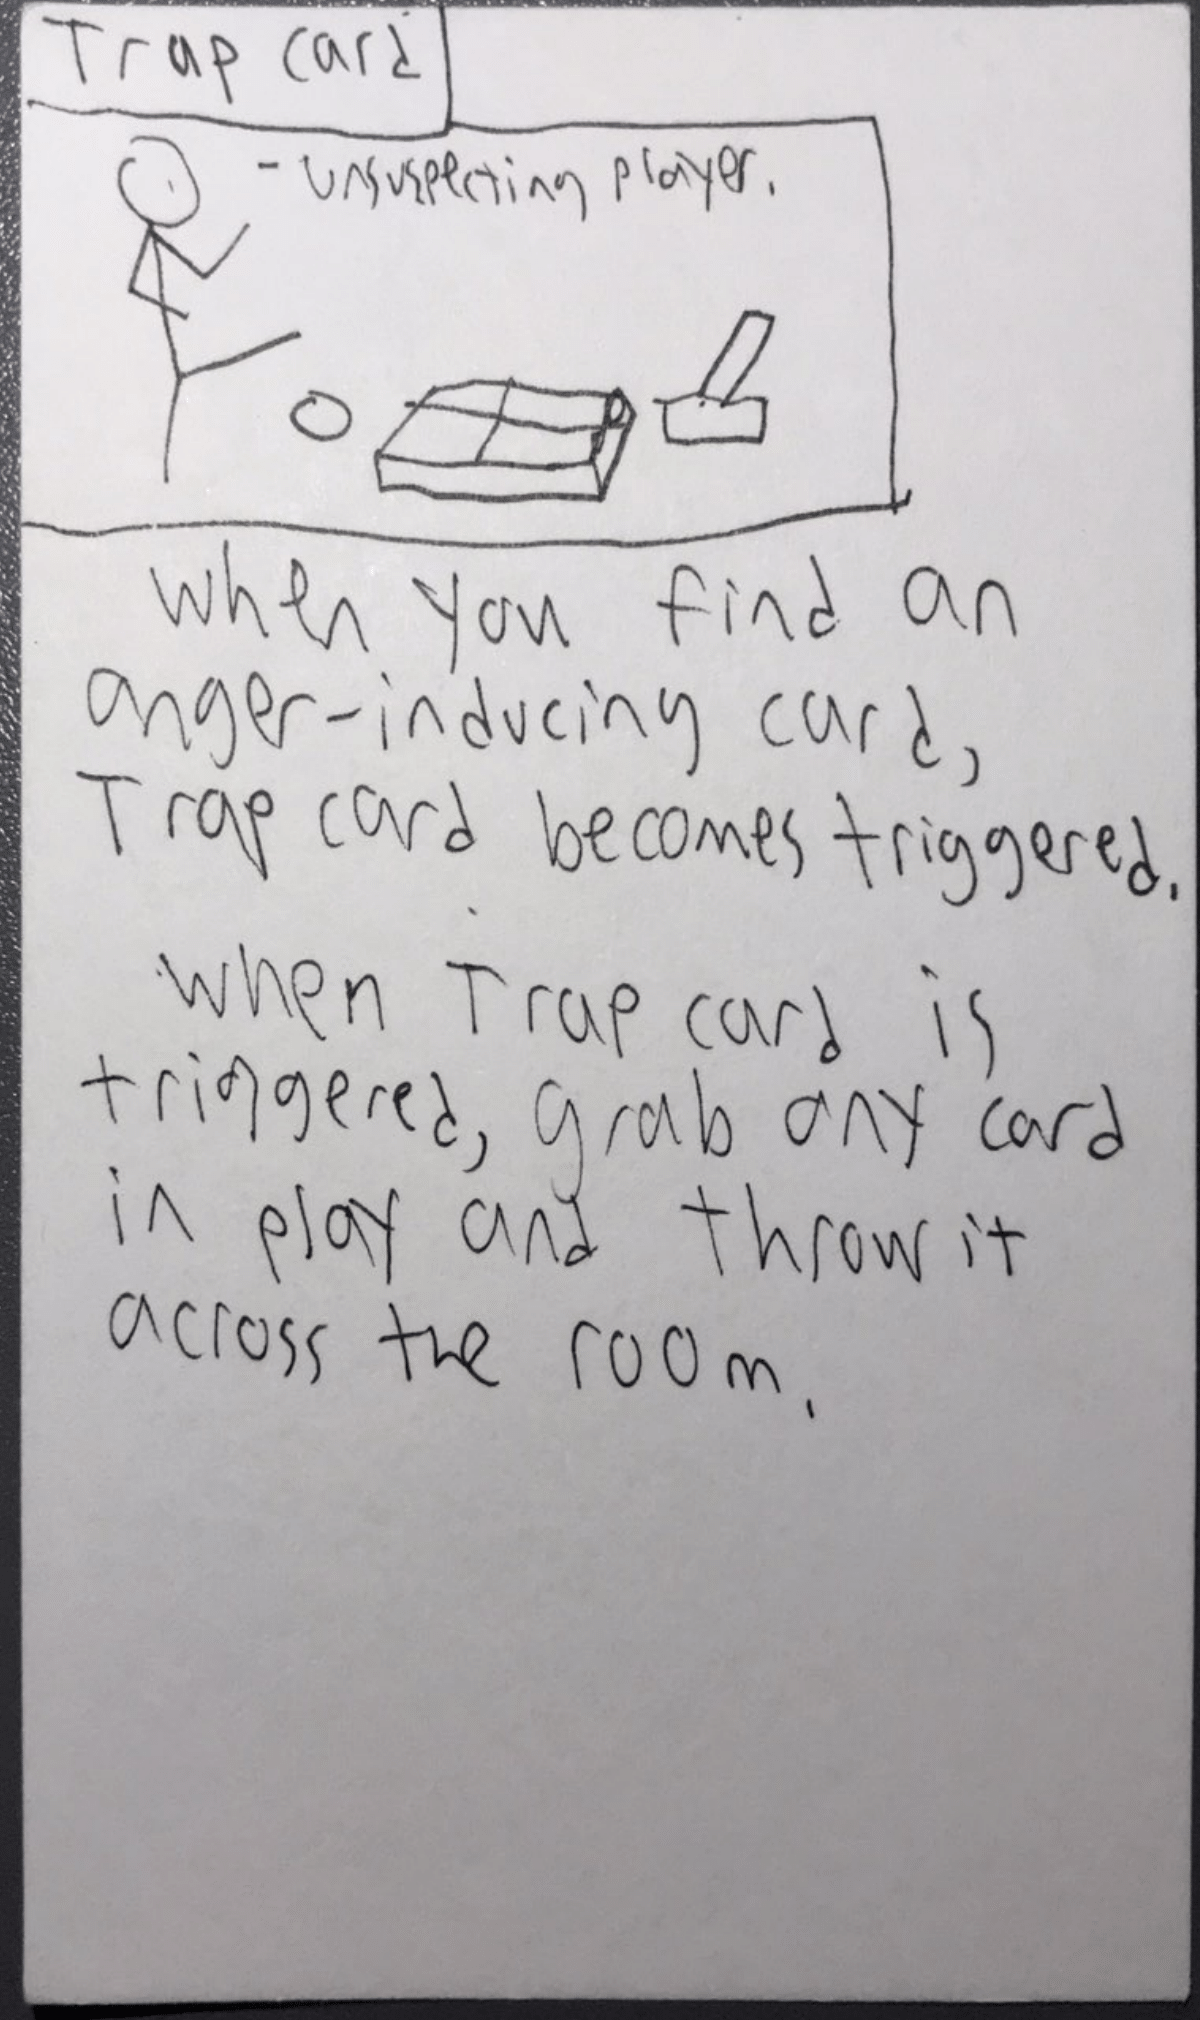 Trap card
- Unsuspecting player.
When you find an
anger-inducing card,
Trap card becomes triggered.
When Trap card is
triggered, grab any card
in play and throw it
across the room.